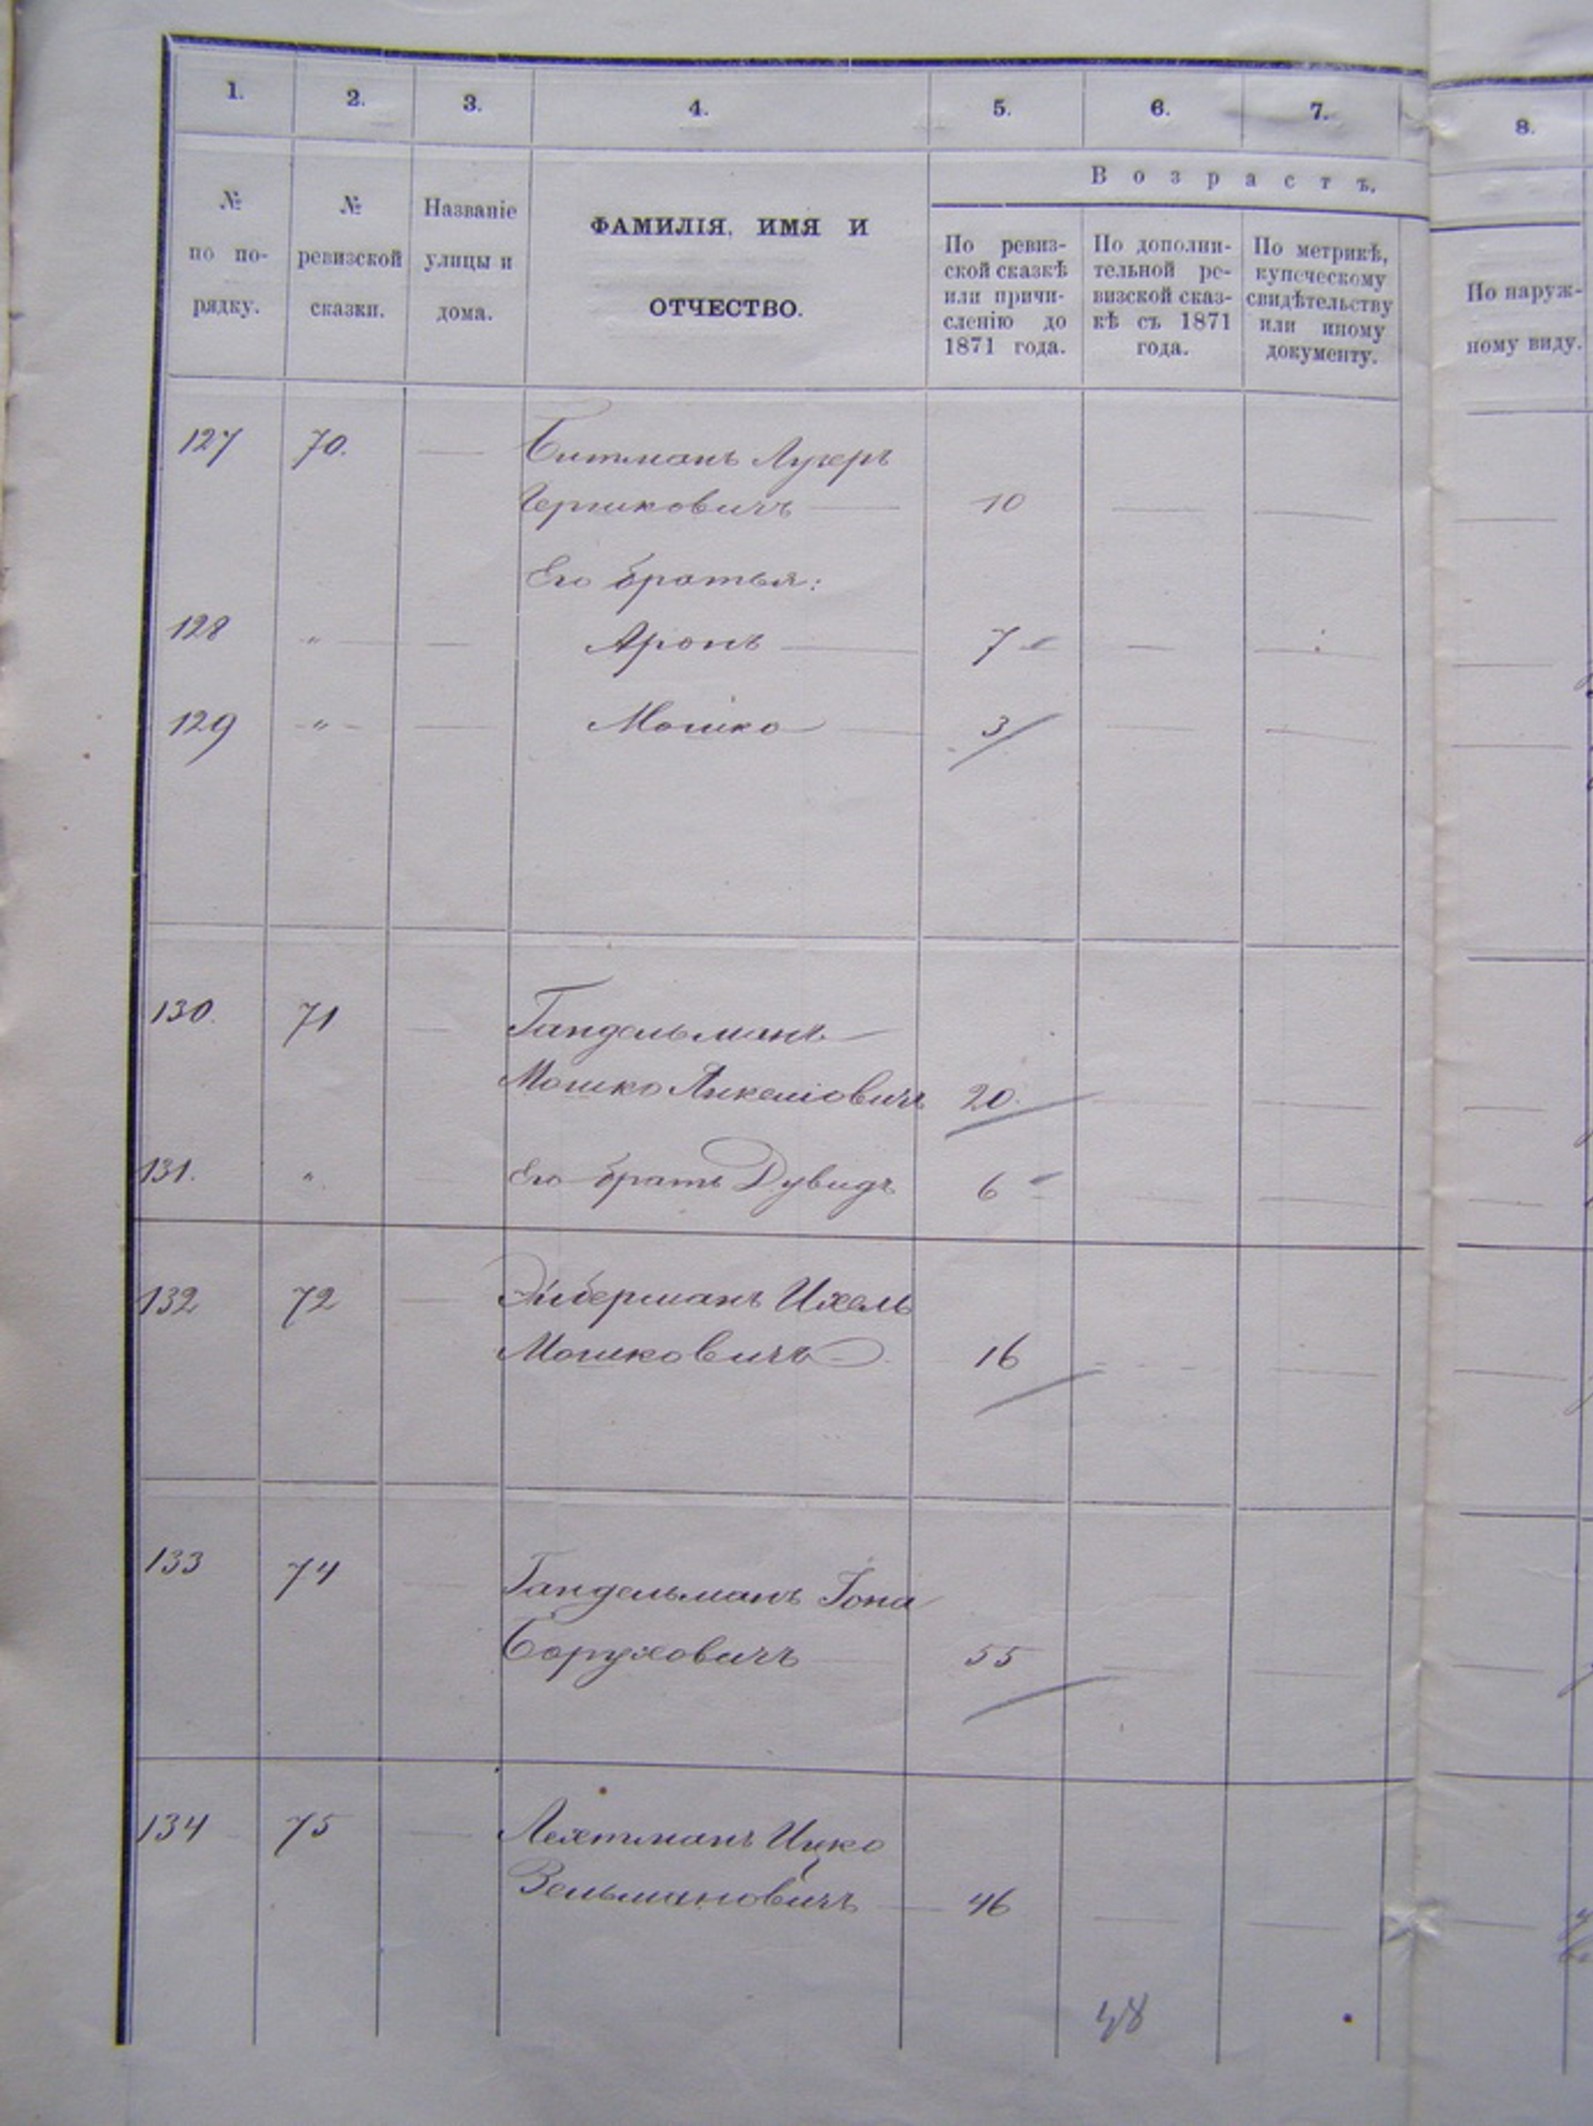 1. 2. 3. 4. 5. 6. 7. 8.
Возрастъ.
№ по по-рядку.
№ ревизской сказки.
Названіе улицы и дома.
ФАМИЛІЯ, ИМЯ И ОТЧЕСТВО.
По ревиз-
ской сказкѣ
или причи-
сленію до
1871 года.
По дополни-
тельной ре-
визской сказ-
кѣ съ 1871
года.
По метрикѣ,
купеческому
свидѣтельству
или иному
документу.
По наруж-
ному виду.
127 70. — Битманъ Лузеръ
Гершковичъ — 10 — — —
Его братья:
128 „ — Аронъ — 7 — — —
129 „ — Мошко — 3 — — —
130. 71 — Гандельманъ
Мошко Янкеліовичъ 20. — — —
131. „ Его братъ Дувидъ 6 — — —
132 72 — Либерманъ Ихель
Мошковичъ 16 — — —
133 74 — Гандельманъ Іона
Боруховичъ — 55 — — —
134 75 — Лехтманъ Ицко
Зельмановичъ — 46 — — —
48